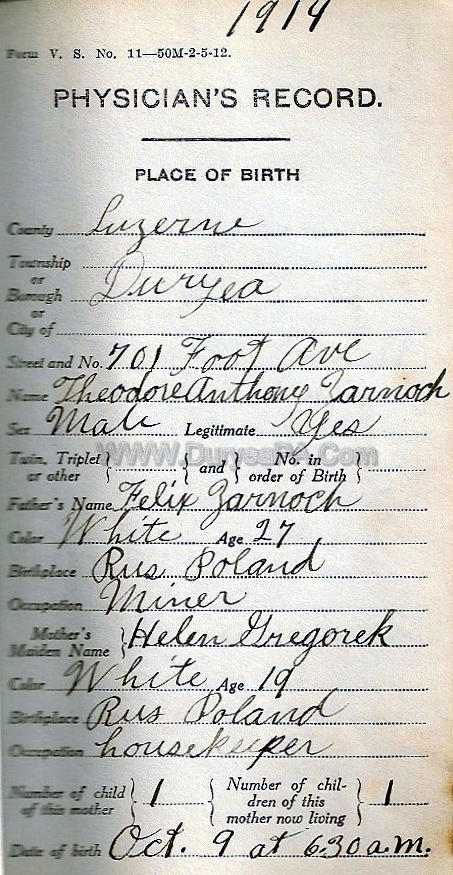 1914
Form V. S. No. 11—50M-2-5-12.
PHYSICIAN'S RECORD.
PLACE OF BIRTH
County Luzerne
Township
or
Borough Duryea
or
City of
Street and No. 701 Foot Ave
Name Theodore Anthony Zarnoch
Sex Male Legitimate Yes
WWW.DuryeaPa.Com
Twin, Triplet } { and { No. in
or other } { order of Birth }
Father's Name Felix Zarnoch
Color White Age 27
Birthplace Rus Poland
Occupation Miner
Mother's } Helen Gregorek
Maiden Name
Color White Age 19
Birthplace Rus Poland
Occupation housekeeper
Number of child } 1 { Number of chil- } 1
of this mother dren of this
mother now living
Date of birth Oct. 9 at 6.30 a.m.